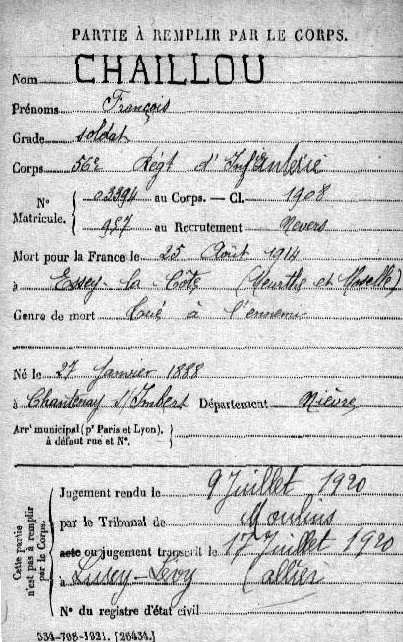 PARTIE À REMPLIR PAR LE CORPS.
Nom CHAILLOU
Prénoms François
Grade soldat
Corps 56e Régt d'Infanterie
N° Matricule. { 02394 au Corps. — Cl. 1908
987 au Recrutement Nevers
Mort pour la France le 25 Août 1914
à Essey-la-Côte (Meurthe et Moselle)
Genre de mort Tué à l'ennemi
Né le 27 Janvier 1888
à Chantenay St Imbert Département Nièvre
Arrt municipal (pr Paris et Lyon), à défaut rue et N°. }
Cette partie n'est pas à remplir par le Corps.
Jugement rendu le 9 Juillet 1920
par le Tribunal de Moulins
acte ou jugement transcrit le 17 Juillet 1920
à Lurcy-Lévy (Allier)
N° du registre d'état civil
534-708-1921. [26434.]